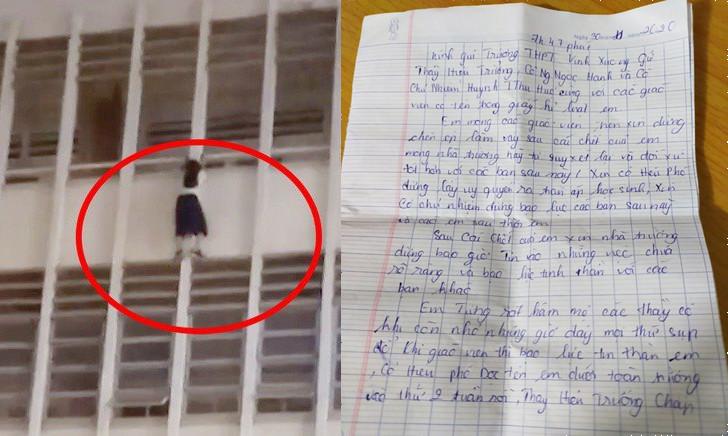 7h 47 phút Ngày 30 11 2020
Kính gửi Trường THPT Vĩnh Xương Gửi
Thầy Hiệu Trưởng, Cô Ng Ngọc Hạnh và Cô
Chủ Nhiệm Huỳnh T Thu cùng với các giáo
viên có tên trong giấy kỉ luật em
Em mong các giáo viên nên xin đừng
chèn ép làm vậy sau cái chết của em
mong nhà trường hãy tự suy xét lại và đối xử
tốt hơn với các bạn sau này! Xin cô hiệu phó
đừng lấy uy quyền ra đàn áp học sinh, xin
cô chủ nhiệm đừng bạo lực các bạn sau này
và các em sau thiệt em
Sau cái chết của em xin nhà trường
đừng bao giờ tin vào những việc chưa
rõ ràng và bạo lực tinh thần với các
bạn khác
Em từng rất hâm mộ các thầy cô
khi còn nhỏ nhưng giờ đây mọi thứ sụp
đổ khi giáo viên thì bạo lực tin thần em
, Cô hiệu phó Đọc tên em dưới toàn trường
vào thứ 2 tuần rồi, Thầy Hiệu Trưởng Chấp